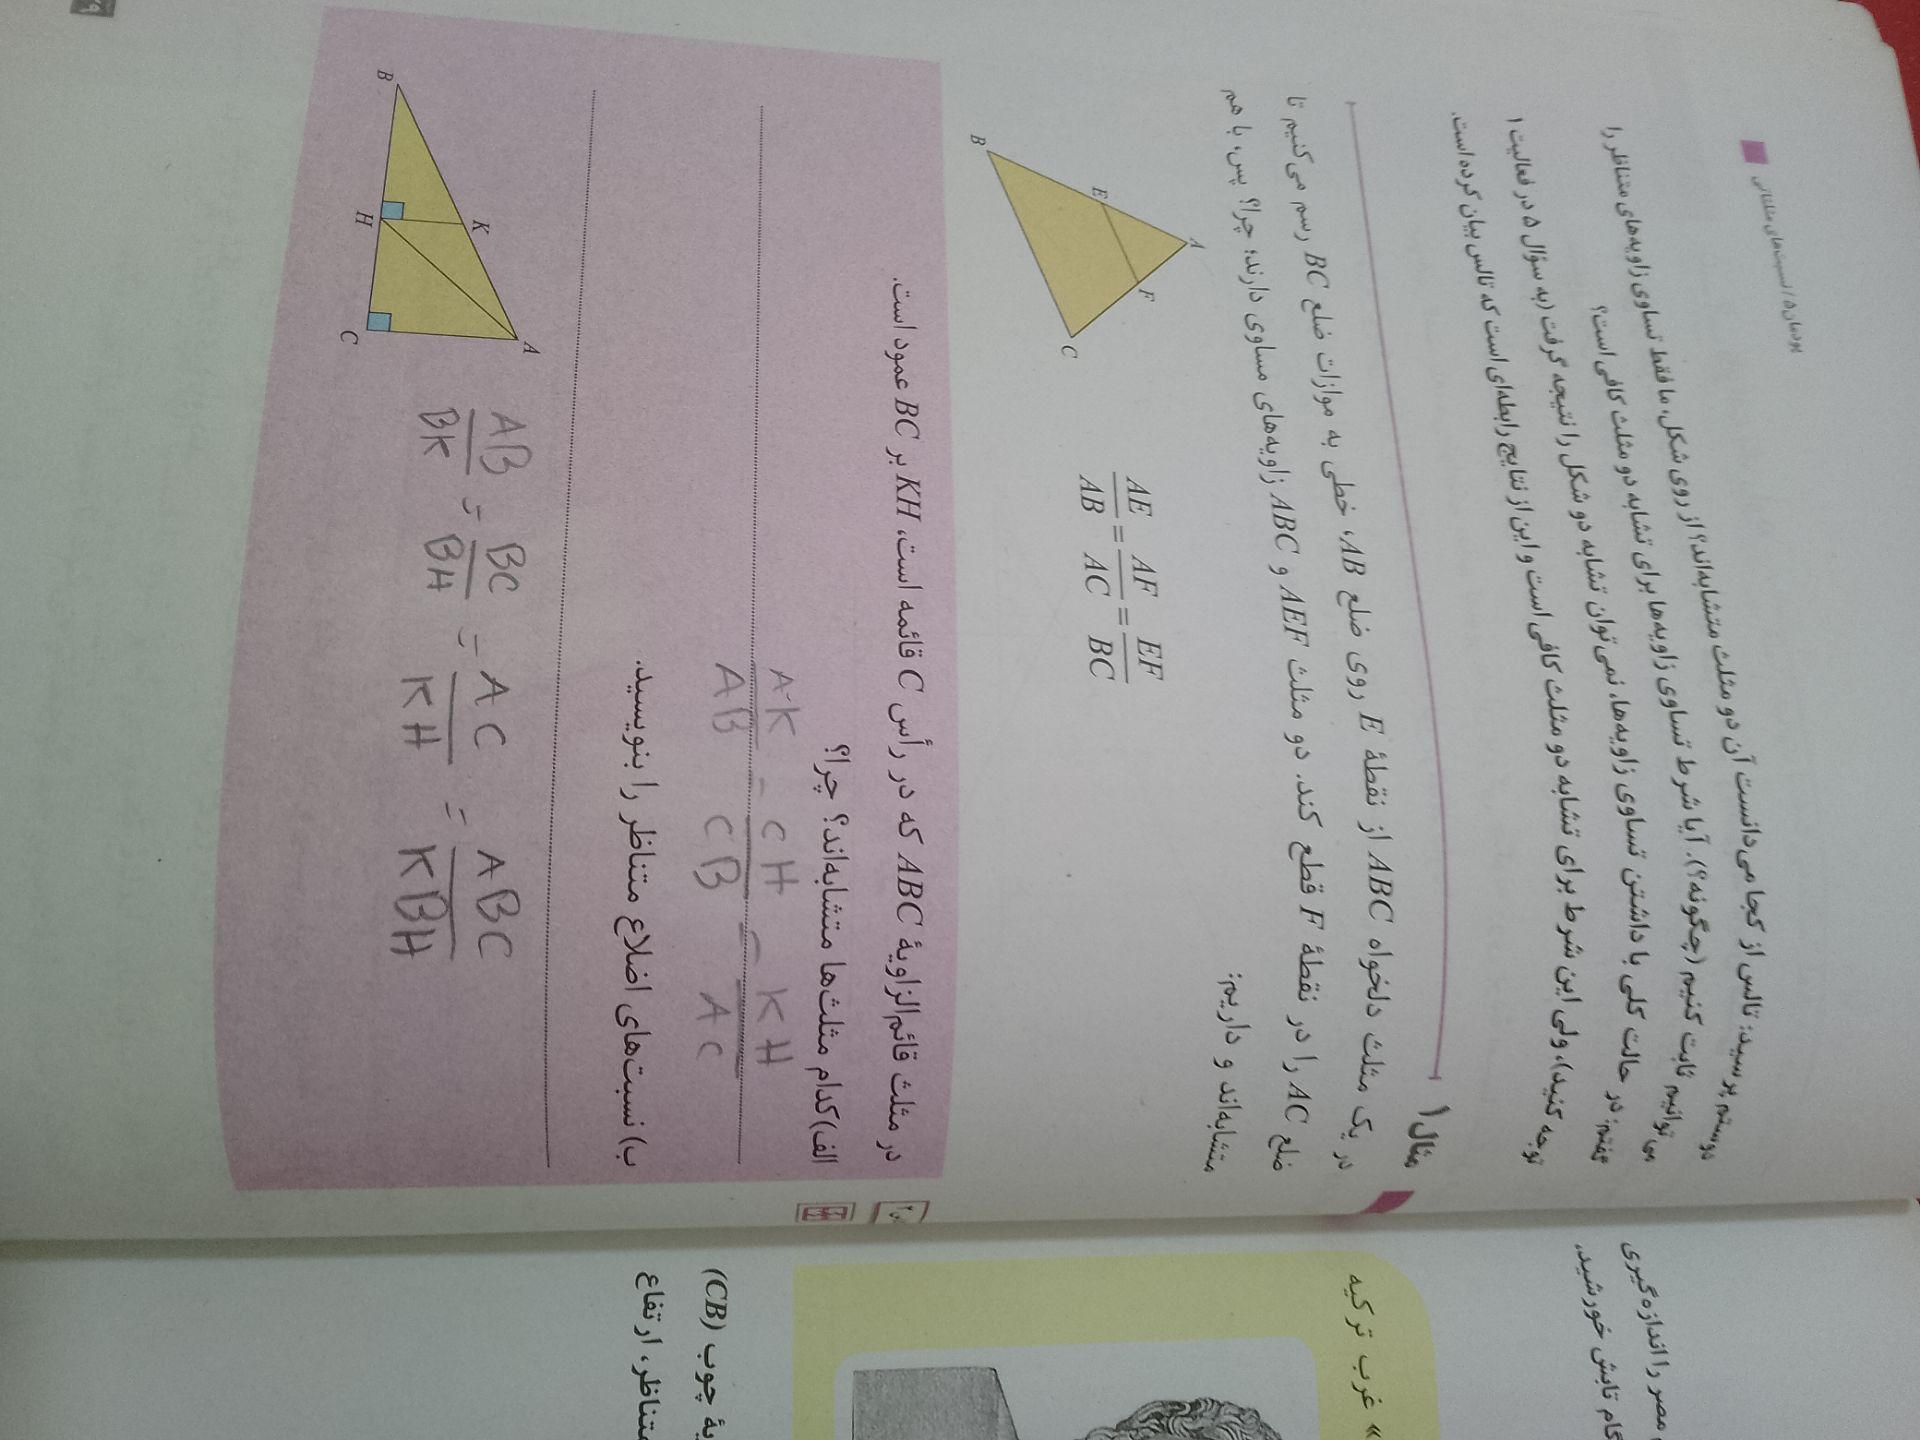 پودمان ۵ / نسبت‌های مثلثاتی
دوستم پرسید: تالس از کجا می‌دانست آن دو مثلث متشابه‌اند؟ از روی شکل، ما فقط تساوی زاویه‌های متناظر را
می‌توانیم ثابت کنیم (چگونه؟). آیا شرط تساوی زاویه‌ها برای تشابه دو مثلث کافی است؟
گفتم: در حالت کلی با داشتن تساوی زاویه‌ها، نمی‌توان تشابه دو شکل را نتیجه گرفت (به سؤال ۵ در فعالیت ۱
توجه کنید)، ولی این شرط برای تشابه دو مثلث کافی است و این از نتایج رابطه‌ای است که تالس بیان کرده است.
مثال ۱
در یک مثلث دلخواه ABC از نقطهٔ E روی ضلع AB، خطی به موازات ضلع BC رسم می‌کنیم تا
ضلع AC را در نقطهٔ F قطع کند. دو مثلث AEF و ABC زاویه‌های مساوی دارند؛ چرا؟ پس، با هم
متشابه‌اند و داریم:
A
E
F
B
C
AE/AB = AF/AC = EF/BC
در مثلث قائم‌الزاویهٔ ABC که در رأس C قائمه است، KH بر BC عمود است.
الف) کدام مثلث‌ها متشابه‌اند؟ چرا؟
A-K/AB - CH/CB - KH/AC
ب) نسبت‌های اضلاع متناظر را بنویسید.
A
K
B
H
C
AB/BK = BC/BH - AC/KH = ABC/KBH
مصر را اندازه‌گیری
تابش خورشید،
» غرب ترکیه
چوب (CB)
ارتفاع